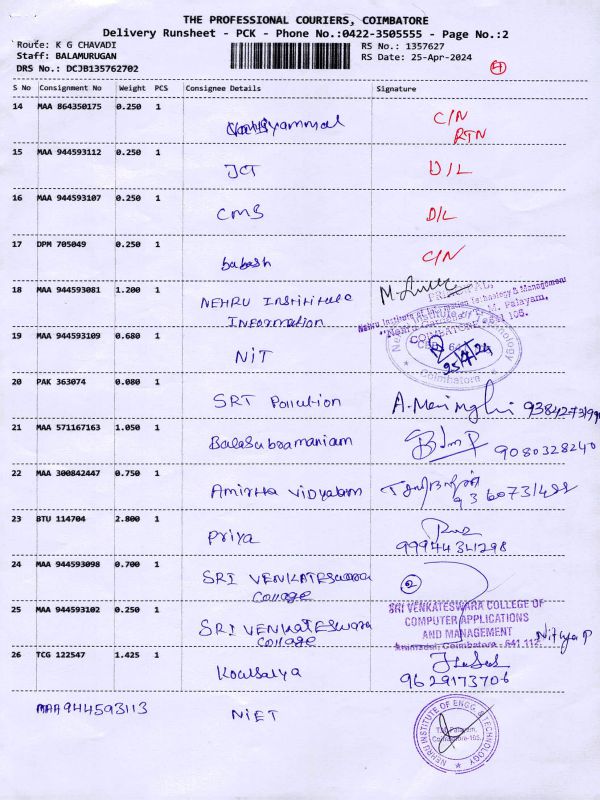 THE PROFESSIONAL COURIERS, COIMBATORE
Delivery Runsheet - PCK - Phone No.:0422-3505555 - Page No.:2
Route: K G CHAVADI RS No.: 1357627
Staff: BALAMURUGAN RS Date: 25-Apr-2024
DRS No.: DCJB135762702 4
S No Consignment No Weight PCS Consignee Details Signature
14 MAA 864350175 0.250 1 C/N
RTN
15 MAA 944593112 0.250 1 JCT D/L
16 MAA 944593107 0.250 1 CMS D/L
17 DPM 705049 0.250 1 babash C/N
18 MAA 944593081 1.200 1 NEHRU Institituele
INFORMATION
PRINCIPAL,
Nehru Institute of Information Technology & Management
COIMBATORE 641 105.
19 MAA 944593109 0.680 1 NIT
Coimbatore
20 PAK 363074 0.080 1 SRT Pollution
21 MAA 571167163 1.050 1 Balasubramaniam 9080328240
22 MAA 300842447 0.750 1 Amirtha vidyalam
23 BTU 114704 2.800 1 Priya
99944341298
24 MAA 944593098 0.700 1 SRI VENKATESWARA 2
College
25 MAA 944593102 0.250 1 SRI VENKATESWARA
College
SRI VENKATESWARA COLLEGE OF
COMPUTER APPLICATIONS
AND MANAGEMENT
Coimbatore - 641 112 Nithya P
26 TCG 122547 1.425 1 Kowsalya
9629173706
MAA944593113 NIET
NEHRU INSTITUTE OF ENGG. & TECHNOLOGY
T.M. Palayam,
Coimbatore-105.